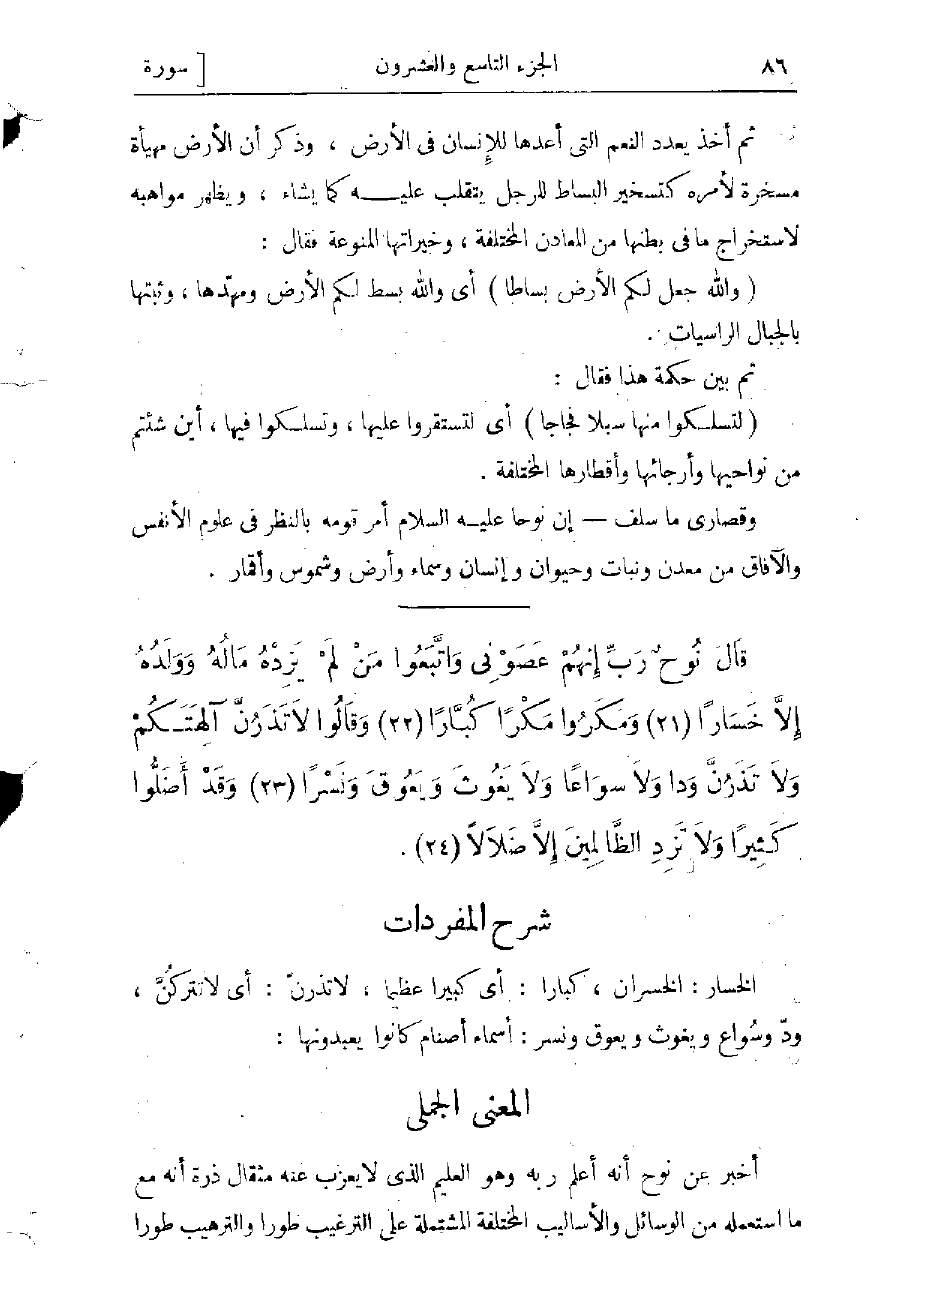 ٨٦ الجزء التاسع والعشرون [ سورة
ثم أخذ يعدد النعم التى أعدها للإنسان فى الأرض ، وذكر أن الأرض مهيأة
مسخرة لأمره كتسخير البساط للرجل يتقلب عليه كما يشاء ، ويظهر مواهبه
لاستخراج ما فى بطنها من المعادن المختلفة ، وخيراتها المنوعة فقال :
( والله جعل لكم الأرض بساطا ) أى والله بسط لكم الأرض ومهّدها ، وثبتها
بالجبال الراسيات .
ثم بين حكمة هذا فقال :
( لتسلكوا منها سبلا فجاجا ) أى لتستقروا عليها ، وتسلكوا فيها ، أين شئتم
من نواحيها وأرجائها وأقطارها المختلفة .
وقصارى ما سلف — إن نوحا عليه السلام أمر قومه بالنظر فى علوم الأنفس
والآفاق من معدن ونبات وحيوان وإنسان وسماء وأرض وشموس وأقمار .
قَالَ نُوحٌ رَبِّ إِنَّهُمْ عَصَوْنِى وَاتَّبَعُوا مَنْ لَمْ يَزِدْهُ مَالُهُ وَوَلَدُهُ
إِلَّا خَسَارًا (٢١) وَمَكَرُوا مَكْرًا كُبَّارًا (٢٢) وَقَالُوا لاَ تَذَرُنَّ آلِهَتَكُمْ
وَلاَ تَذَرُنَّ وَدا وَلاَ سوَاعًا وَلاَ يَغُوثَ وَيَعُوقَ وَنَسْرًا (٢٣) وَقَدْ أَضَلُّوا
كَثِيرًا وَلاَ تَزِدِ الظَّالِمِينَ إِلاَّ ضَلاَلاً (٢٤) .
شرح المفردات
الخسار : الخسران ، كبارا : أى كبيرا عظيما ، لاتذرنّ : أى لاتتركُنَّ ،
ودّ وسُواع ويغوث ويعوق ونسر : أسماء أصنام كانوا يعبدونها :
المعنى الجملى
أخبر عن نوح أنه أعلم ربه وهو العليم الذى لايعزب عنه مثقال ذرة أنه مع
ما استعمله من الوسائل والأساليب المختلفة المشتملة على الترغيب طورا والترهيب طورا